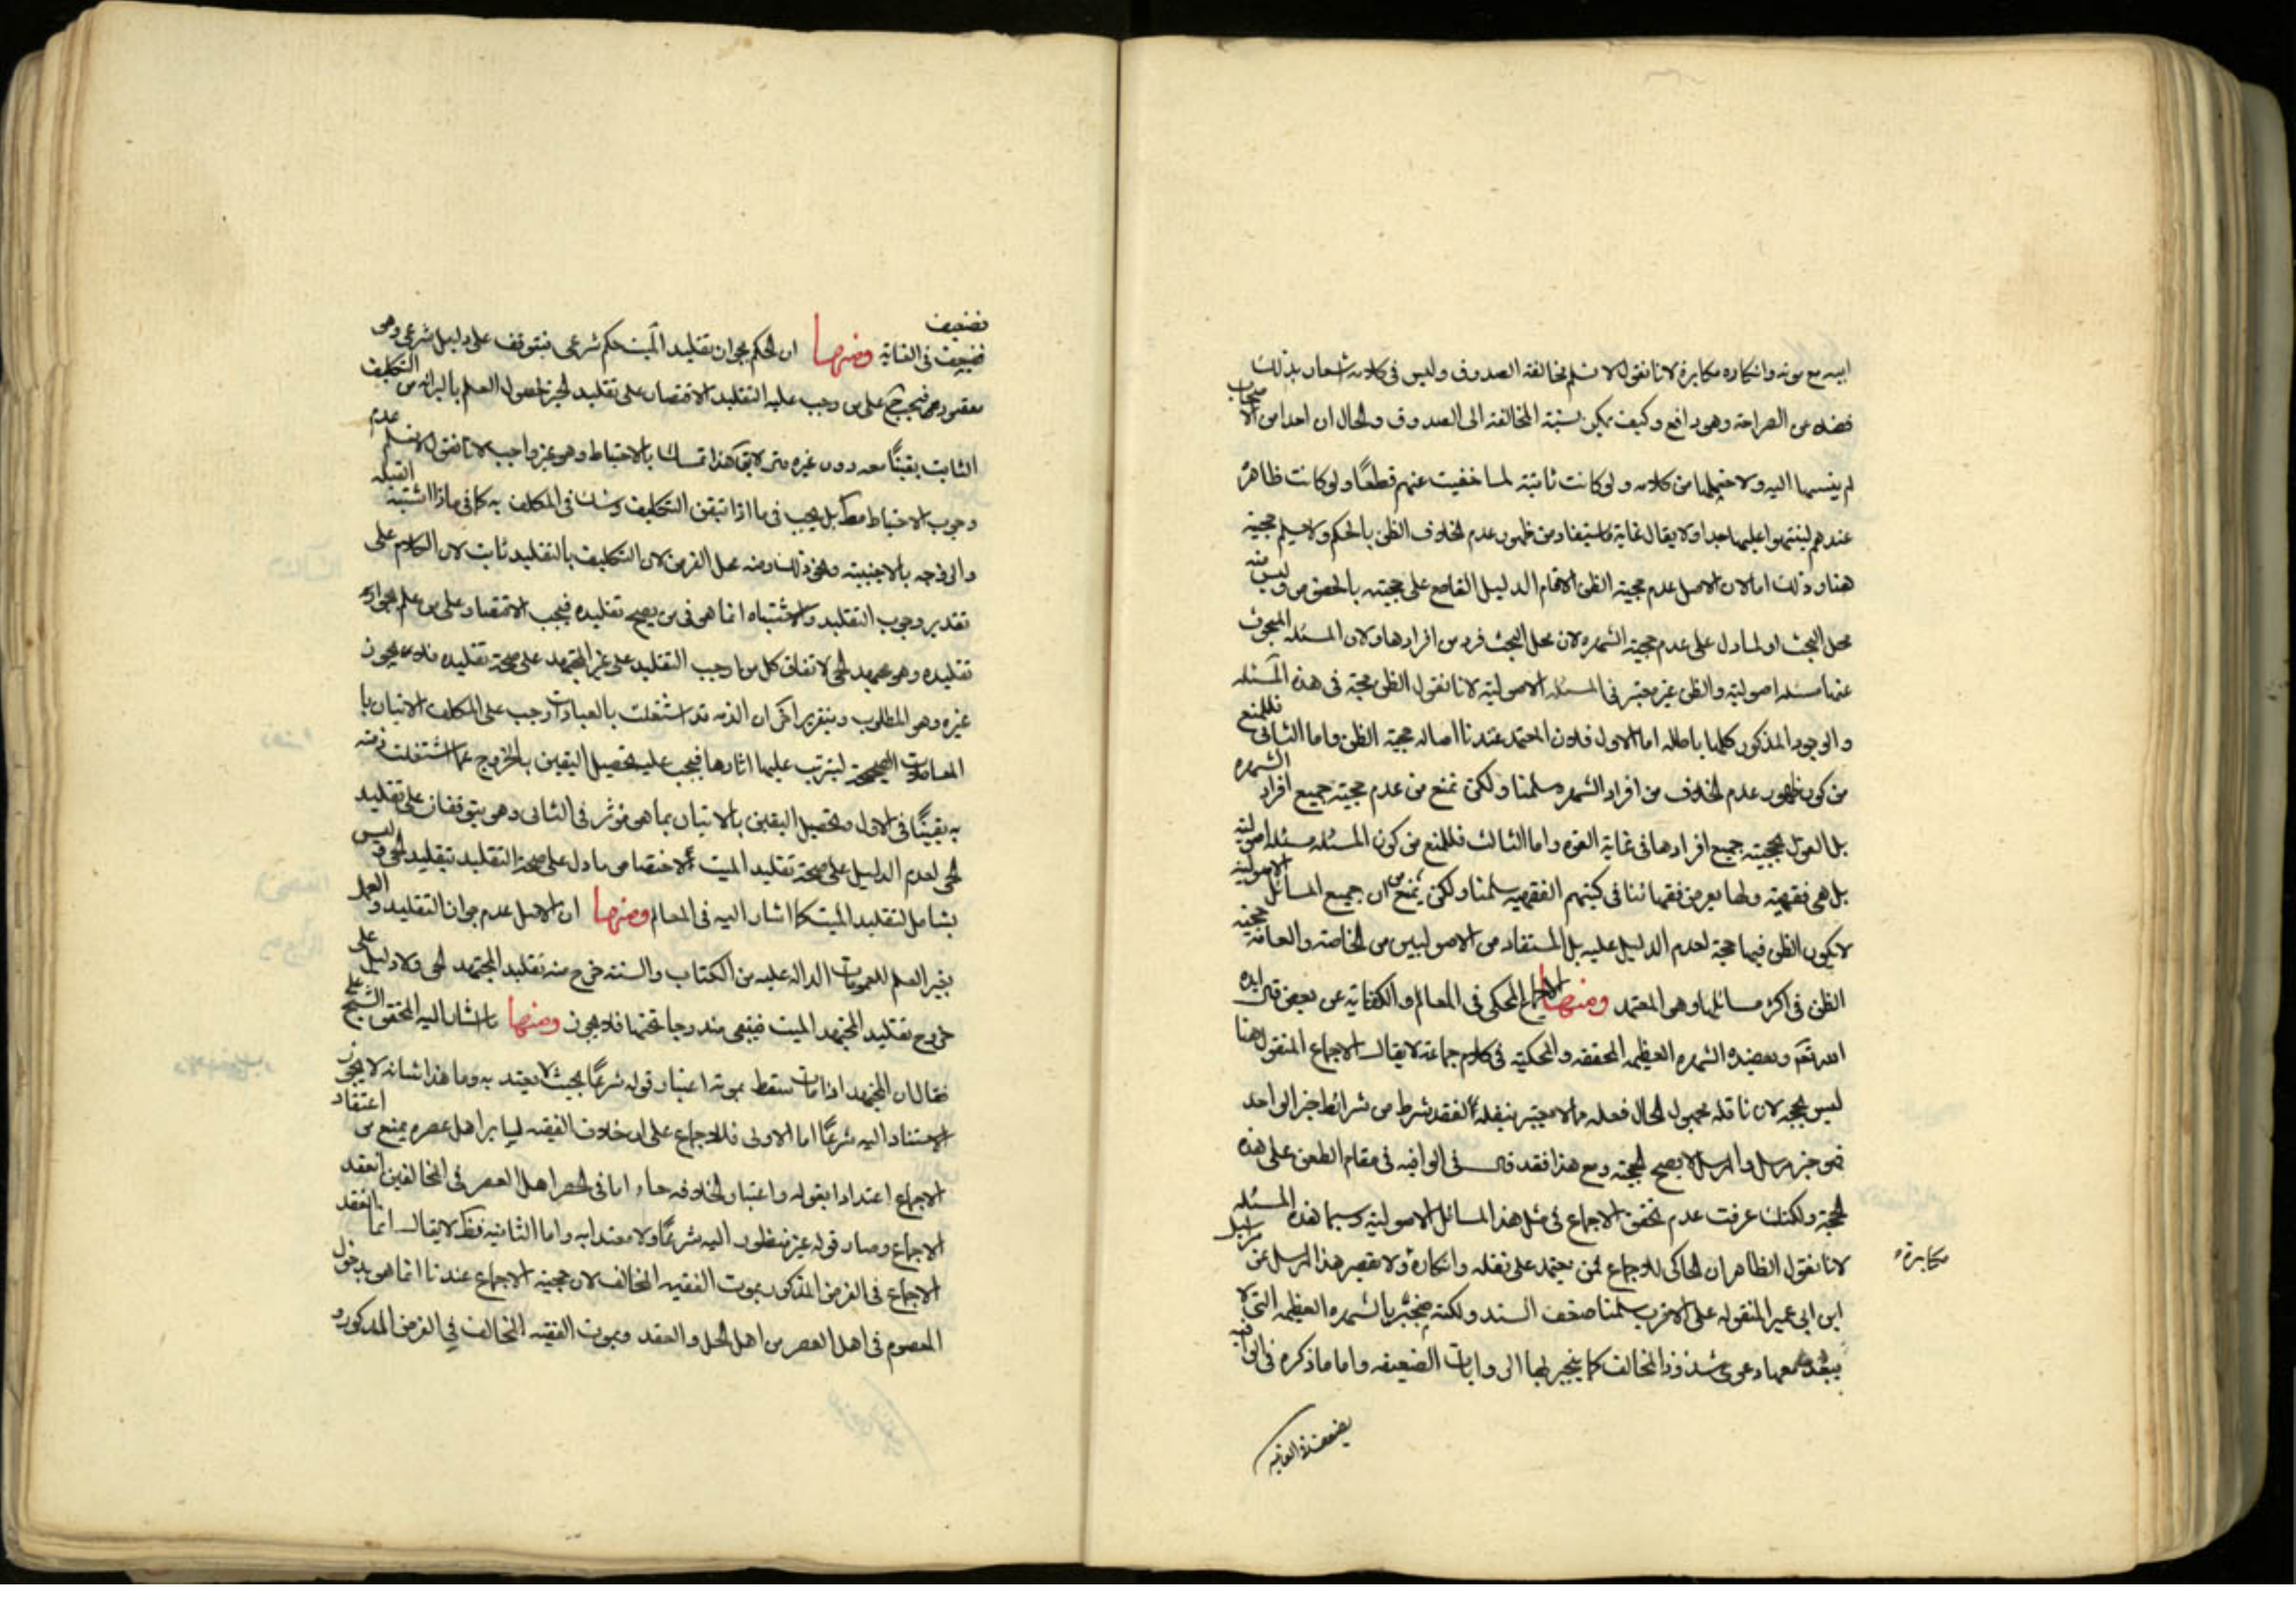 اليه مع موته وانكاره مكابرة لانا نقول لا نسلم مخالفة الصدوق وليس في كلامه اشعار بذلك
فضلا عن الصراحة وهو دافع وكيف يمكن نسبة المخالفة الى الصدوق والحال ان احدا من الاصحاب
لم ينسبها اليه ولا احتملها من كلامه ولو كانت ثابتة لما خفيت عنهم قطعًا ولو كانت ظاهرة
عندهم لينتبهوا عليها جدا ولا يقال غاية ما يستفاد من ظهور عدم الخلاف الظن بالحكم ولا نسلم حجيته
هنا وذلك اما لان الاصل عدم حجية الظن الا ما قام الدليل القاطع على حجيته بالخصوص وليس منه
محل البحث او لما دل على عدم حجية الشهرة لان محل البحث فرد من افرادها ولان المسئلة المبحوث
عنها مسئلة اصولية والظن غير معتبر في المسئلة الاصولية لانا نقول الظن حجة في هذه المسئلة
والوجوه المذكورة كلها باطلة اما الاول فلان المعتمد عندنا اصالة حجية الظن واما الثاني فللمنع
من كون ظهور عدم الخلاف من افراد الشهرة سلمنا ولكن نمنع من عدم حجية جميع افراد الشهرة
بل القول بحجية جميع افرادها في غاية القوة واما الثالث فللمنع من كون المسئلة مسئلة اصولية
بل هي فقهية ولها تعرض فقهائنا في كتبهم الفقهية سلمنا ولكن نمنع من ان جميع المسائل الاصولية
لا يكون الظن فيها حجة لعدم الدليل عليه بل المستفاد من الاصوليين من الخاصة والعامة حجية
الظن في اكثر مسائلها وهو المعتمد ومنها الاجماع المحكي في المعالم والكفاية عن بعض قال ايده
الله تعالى ويعضده الشهرة العظيمة المحققة والمحكية في كلام جماعة لا يقال الاجماع المنقول هنا
ليس بحجة لان ناقله مجهول الحال فعله ممن لا يعتبر بنقله لفقد شرط من شرائط خبر الواحد
فهو خبر مرسل والمرسل لا يصح للحجية ومع هذا فقد قال في الوافية في مقام الطعن على هذه
الحجة ولكنك عرفت عدم تحقق الاجماع في مثل هذا المسائل الاصولية وسيما هذه المسئلة
لانا نقول الظاهر ان الحاكي للاجماع ممن يعتمد على نقله وانكاره ولا يقصر هذا المرسل عن مراسيل
مكابرة
ابن ابي عمير المنقولة على الاقرب سلمنا ضعف السند ولكنه منجبر بالشهرة العظيمة التي لا
يبعد معها دعوى شذوذ المخالف كما ينجبر بها الروايات الضعيفة واما ما ذكره في الوافية
فضعيف في الغاية
فضعيف
فضعيف في الغاية ومنها ان الحكم بجواز تقليد الميت حكم شرعي فيتوقف على دليل شرعي وهو
مفقود ومنها فيجب على من وجب عليه التقليد الاقتصار على تقليد الحي لحصول العلم بالبرائة من التكليف
الثابت يقينًا معه دون غيره حتى لا يقال هذا تمسك بالاحتياط وهو غير واجب لانا نقول لا نسلم عدم
وجوب الاحتياط مطلقا بل يجب في ما اذا تيقن التكليف وشك في المكلف به كما في ما اذا اشتبه القبلة
والزوجة بالاجنبية ونحو ذلك ومنه محل الفرض لان التكليف بالتقليد ثابت لان الكلام على
تقدير وجوب التقليد والاشتباه انما هو في من يصح تقليده فيجب الاقتصار على من علم بجواز
تقليده وهو مجتهد الحي لاتفاق كل من اوجب التقليد على غير المجتهد على صحة تقليده فلا يجوز
غيره وهو المطلوب وبتقرير اخر ان الذمة قد اشتغلت بالعبادات وجب على المكلف الاتيان با
المعاملات الصحيحة ليترتب عليها اثارها فيجب عليه تحصيل اليقين بالخروج عما اشتغلت ذمته
به يقينًا في الاول وتحصيل اليقين بالاتيان بما هو مؤثر في الثاني وهو يتوقفان على تقليد
الحي لعدم الدليل على صحة تقليد الميت لاختصاص ما دل على صحة التقليد بتقليد الحي وليس
بشامل لتقليد الميت كما اشار اليه في المعالم ومنها ان الاصل عدم جواز التقليد والعمل
بغير العلم للعمومات الدالة عليه من الكتاب والسنة خرج منه تقليد المجتهد الحي ولا دليل على
خروج تقليد المجتهد الميت فيبقى مندرجا تحتها فلا يجوز ومنها ما اشار اليه المحقق الشيخ علي
فقال ان المجتهد اذا مات سقط بموته اعتبار قوله شرعًا بحيث لا يعتد به وما هذا شانه لا يجوز
الاستناد اليه شرعًا اما الاولى فللاجماع على ان خلاف الفقيه لسائر اهل عصره يمنع من اعتقاد
الاجماع اعتدادا بقوله واعتبارا لخلافه فاذا مات وانحصر اهل العصر في المخالفين انعقد
الاجماع وصار قوله غير منظور اليه شرعًا ولا معتدا به واما الثانية فظ لا يقال انما انعقد
الاجماع في الفرض المذكور بموت الفقيه المخالف لان حجية الاجماع عندنا انما هو بدخول
المعصوم في اهل العصر من اهل الحل والعقد وبموت الفقيه المخالف في الفرض المذكور